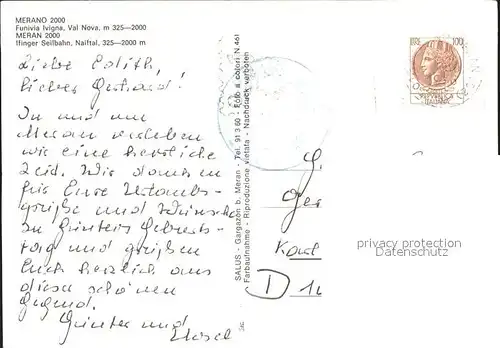 MERANO 2000
Funivia Ivigna, Val Nova, m 325—2000
MERAN 2000
Ifinger Seilbahn, Naiftal, 325—2000 m
Liebe Edith,
lieber Gerhard!
In und um
Meran verleben
wir eine herrliche
Zeit. Wir danken
für Eure Urlaubs-
grüße und Wünsche
zu Günters Geburts-
tag und grüßen
Euch herzlich aus
dieser schönen
Gegend.
Günter und
SALUS - Gargazon b. Meran - Tel. 91 3 60 - Foto a colori N 461
Farbaufnahme - Riproduzione vietata - Nachdruck verboten
LIRE 100
REPVBBLICA
ITALIANA
Ger
Karl
D
privacy protection
Datenschutz